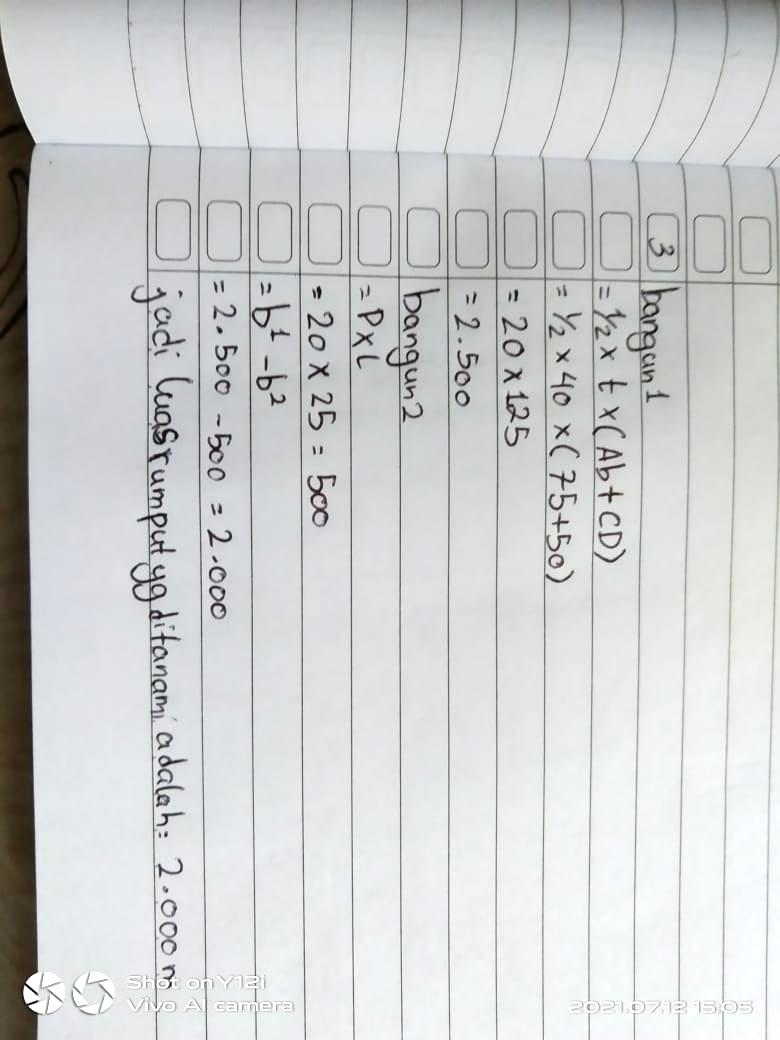 3 bangun 1
= 1/2 x t x (Ab + CD)
= 1/2 x 40 x (75+50)
= 20 x 125
= 2.500
bangun 2
= P x L
= 20 x 25 = 500
= b1 - b2
= 2.500 - 500 = 2.000
jadi luas rumput yg ditanami adalah = 2.000 m
Shot on Y12i
Vivo AI camera
2021.07.12 15:05